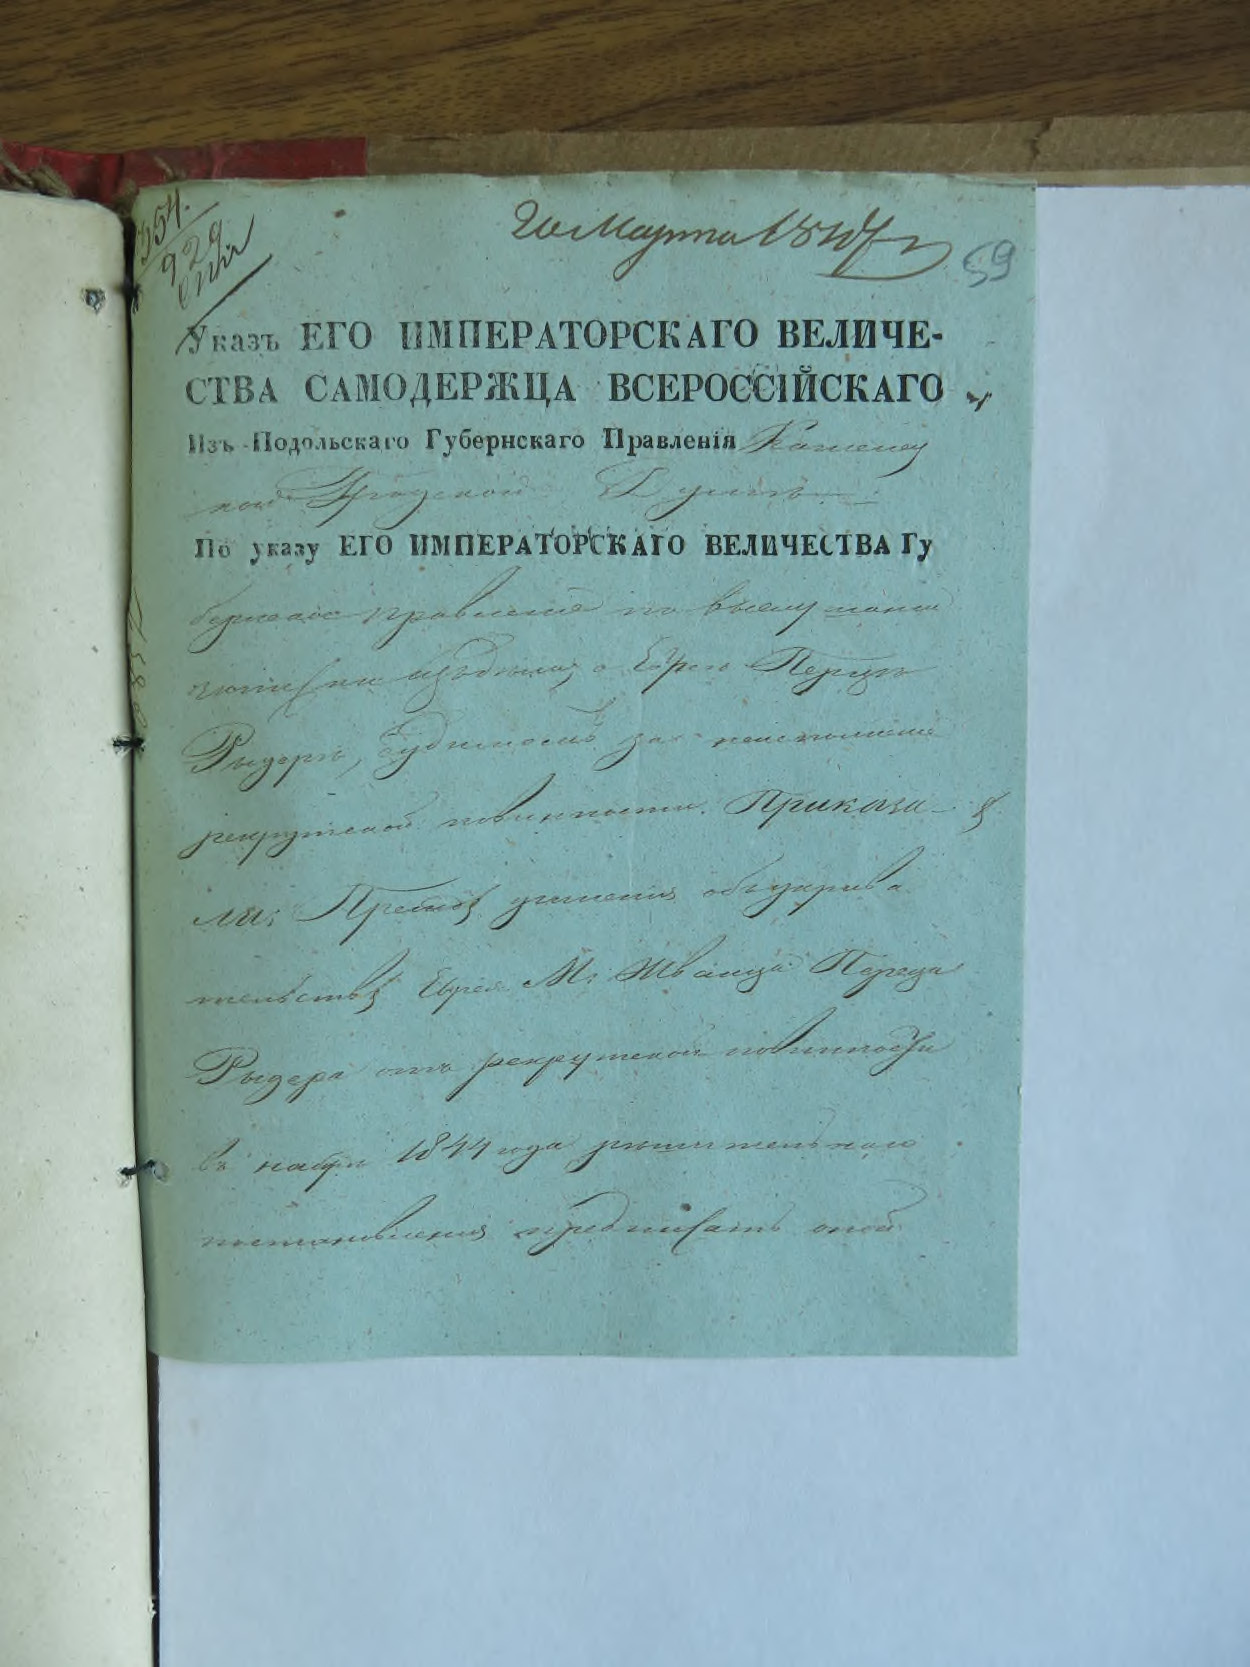 354.
929
20 Марта 1847 г
59
Указъ ЕГО ИМПЕРАТОРСКАГО ВЕЛИЧЕ-
СТВА САМОДЕРЖЦА ВСЕРОССІЙСКАГО
Изъ Подольскаго Губернскаго Правленія Каменец
кой Градской Думѣ
По указу ЕГО ИМПЕРАТОРСКАГО ВЕЛИЧЕСТВА Гу
бернское правленіе по
о Евреѣ Перецѣ
Рыдерѣ, судимомъ за неисполненіе
рекрутской повинности. Приказа-
ли: учиненія обѣукрыва
тельствѣ Еврея М: Жванца Переца
Рыдера отъ рекрутской повинности
въ наборѣ 1844 года рѣшительнаго
постановленія предписать оной